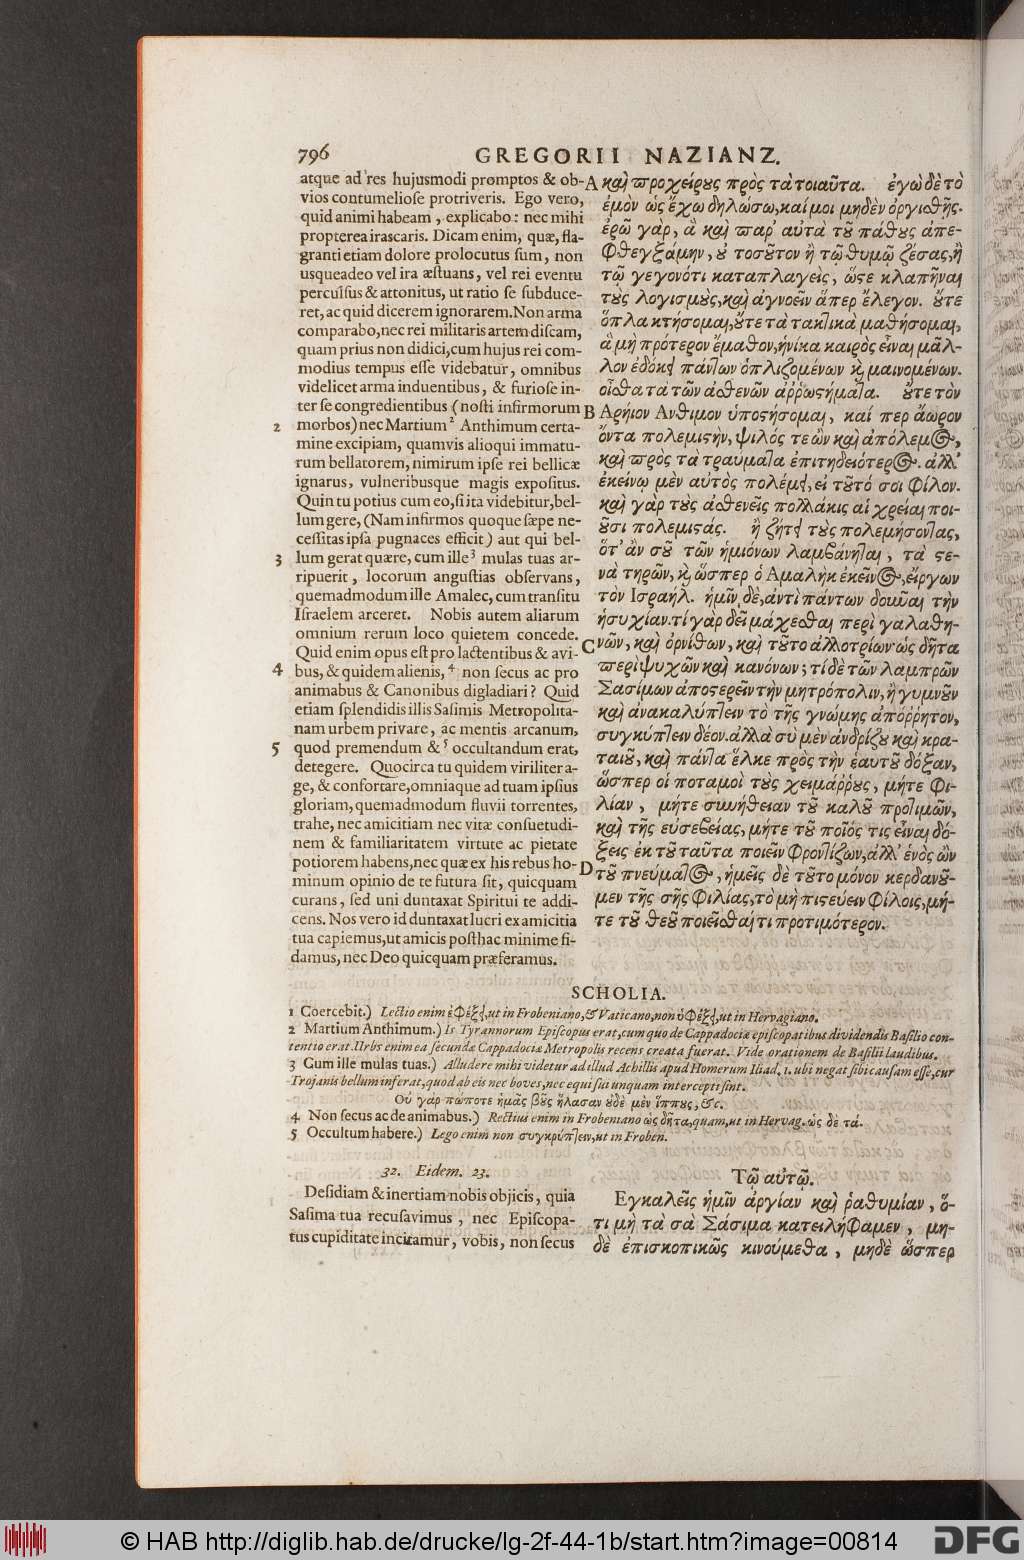 796
GREGORII NAZIANZ.
atque ad res hujusmodi promptos & ob-
vios contumelioſe protriveris. Ego vero,
quid animi habeam, explicabo: nec mihi
propterea iraſcaris. Dicam enim, quæ, fla-
granti etiam dolore prolocutus ſum, non
usqueadeo vel ira æſtuans, vel rei eventu
perculſus & attonitus, ut ratio ſe ſubduce-
ret, ac quid dicerem ignorarem. Non arma
comparabo, nec rei militaris artem diſcam,
quam prius non didici, cum hujus rei com-
modius tempus eſſe videbatur, omnibus
videlicet arma induentibus, & furioſe in-
ter ſe congredientibus (noſti infirmorum
2 morbos) nec Martium² Anthimum certa-
mine excipiam, quamvis alioqui immatu-
rum bellatorem, nimirum ipſe rei bellicæ
ignarus, vulneribusque magis expoſitus.
Quin tu potius cum eo, ſi ita videbitur, bel-
lum gere, (Nam infirmos quoque ſæpe ne-
ceſſitas ipſa pugnaces efficit) aut qui bel-
3 lum gerat quære, cum ille³ mulas tuas ar-
ripuerit, locorum anguſtias obſervans,
quemadmodum ille Amalec, cum tranſitu
Iſraelem arceret. Nobis autem aliarum
omnium rerum loco quietem concede.
Quid enim opus eſt pro lactentibus & avi-
4 bus, & quidem alienis,⁴ non ſecus ac pro
animabus & Canonibus digladiari? Quid
etiam ſplendidis illis Saſimis Metropolita-
nam urbem privare, ac mentis arcanum,
5 quod premendum &⁵ occultandum erat,
detegere. Quocirca tu quidem viriliter a-
ge, & confortare, omniaque ad tuam ipſius
gloriam, quemadmodum fluvii torrentes,
trahe, nec amicitiam nec vitæ conſuetudi-
nem & familiaritatem virtute ac pietate
potiorem habens, nec quæ ex his rebus ho-
minum opinio de te futura ſit, quicquam
curans, ſed uni duntaxat Spiritui te addi-
cens. Nos vero id duntaxat lucri ex amicitia
tua capiemus, ut amicis poſthac minime fi-
damus, nec Deo quicquam præferamus.
A καὶ προχείρους πρὸς τὰ τοιαῦτα. ἐγὼ δὲ τὸ
ἐμὸν ὡς ἔχω δηλώσω, καί μοι μηδὲν ὀργισθῇς.
ἐρῶ γὰρ, ἃ καὶ παρ' αὐτὰ τοῦ πάθους ἀπε-
φθεγξάμην, οὐ τοσοῦτον ἢ τῷ θυμῷ ζέσας, ἢ
τῷ γεγονότι καταπλαγεὶς, ὥστε κλαπῆναι
τοὺς λογισμοὺς, καὶ ἀγνοεῖν ἅπερ ἔλεγον. οὔτε
ὅπλα κτήσομαι, οὔτε τὰ τακτικὰ μαθήσομαι,
ἃ μὴ πρότερον ἔμαθον, ἡνίκα καιρὸς εἶναι μᾶλ-
λον ἐδόκει πάντων ὁπλιζομένων καὶ μαινομένων.
οἶσθα τὰ τῶν ἀσθενῶν ἀῤῥωστήματα. οὔτε τὸν
B Αρήιον Ανθιμον ὑποστήσομαι, καί περ ἄωρον
ὄντα πολεμιστὴν, ψιλός τε ὢν καὶ ἀπόλεμος,
καὶ πρὸς τὰ τραύματα ἐπιτηδειότερος. ἀλλ'
ἐκείνῳ μὲν αὐτὸς πολέμει, εἰ τοῦτό σοι φίλον.
καὶ γὰρ τοὺς ἀσθενεῖς πολλάκις αἱ χρείαι ποι-
οῦσι πολεμιστάς. ἢ ζήτει τοὺς πολεμήσοντας,
ὅτ' ἂν σοῦ τῶν ἡμιόνων λαμβάνηται, τὰ στε-
νὰ τηρῶν, καὶ ὥσπερ ὁ Αμαλὴκ ἐκεῖνος, εἴργων
τὸν Ισραήλ. ἡμῖν δὲ, ἀντὶ πάντων δοῦναι τὴν
ἡσυχίαν. τί γὰρ δεῖ μάχεσθαι περὶ γαλαθη-
C νῶν, καὶ ὀρνίθων, καὶ τοῦτο ἀλλοτρίων· ὡς δῆτα
περὶ ψυχῶν καὶ κανόνων; τί δὲ τῶν λαμπρῶν
Σασίμων ἀποστερεῖν τὴν μητρόπολιν, ἢ γυμνοῦν
καὶ ἀνακαλύπτειν τὸ τῆς γνώμης ἀπόῤῥητον,
συγκύπτειν δέον. ἀλλὰ σὺ μὲν ἀνδρίζου καὶ κρα-
ταιοῦ, καὶ πάντα ἕλκε πρὸς τὴν ἑαυτοῦ δόξαν,
ὥσπερ οἱ ποταμοὶ τοὺς χειμάῤῥους, μήτε φι-
λίαν, μήτε συνήθειαν τοῦ καλοῦ προτιμῶν,
καὶ τῆς εὐσεβείας, μήτε τοῦ ποῖός τις εἶναι δό-
ξεις ἐκ τοῦ ταῦτα ποιεῖν φροντίζων, ἀλλ' ἑνὸς ὢν
D τοῦ πνεύματος, ἡμεῖς δὲ τοῦτο μόνον κερδανοῦ-
μεν τῆς σῆς φιλίας, τὸ μὴ πιστεύειν φίλοις, μή-
τε τοῦ θεοῦ ποιεῖσθαί τι προτιμότερον.
SCHOLIA.
1 Coercebit.) Lectio enim ἐφέξει, ut in Frobeniano, & Vaticano, non ὑφέξει, ut in Hervagiano.
2 Martium Anthimum.) Is Tyrannorum Epiſcopus erat, cum quo de Cappadociæ epiſcopatibus dividendis Baſilio con-
tentio erat. Urbs enim ea ſecundæ Cappadociæ Metropolis recens creata fuerat. Vide orationem de Baſilii laudibus.
3 Cum ille mulas tuas.) Alludere mihi videtur ad illud Achillis apud Homerum Iliad. 1. ubi negat ſibi cauſam eſſe, cur
Trojanis bellum inferat, quod ab eis nec boves, nec equi ſui unquam intercepti ſint.
Οὐ γὰρ πώποτε ἡμᾶς βοῦς ἤλασαν οὐδὲ μὲν ἵππους, &c.
4 Non ſecus ac de animabus.) Rectius enim in Frobeniano ὡς δῆτα, quam, ut in Hervag. ὡς δὲ τά.
5 Occultum habere.) Lego enim non συγκρύπτειν, ut in Froben.
32. Eidem. 23.
Deſidiam & inertiam nobis objicis, quia
Saſima tua recuſavimus, nec Epiſcopa-
tus cupiditate incitamur, vobis, non ſecus
Τῷ αὐτῷ.
Εγκαλεῖς ἡμῖν ἀργίαν καὶ ῥαθυμίαν, ὅ-
τι μὴ τὰ σὰ Σάσιμα κατειλήφαμεν, μη-
δὲ ἐπισκοπικῶς κινούμεθα, μηδὲ ὥσπερ
© HAB http://diglib.hab.de/drucke/lg-2f-44-1b/start.htm?image=00814
DFG